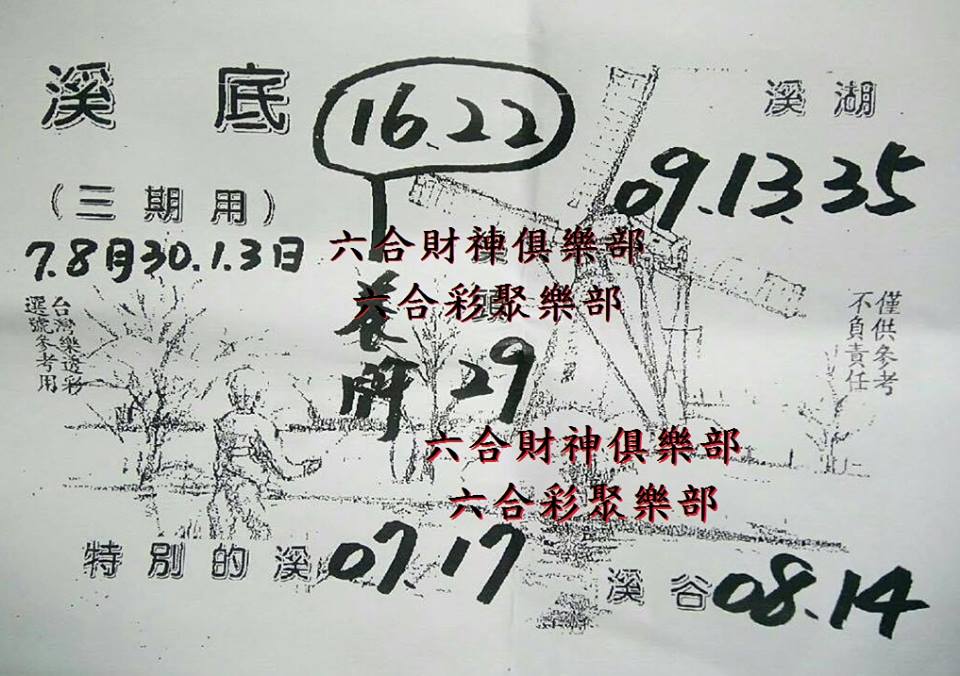 溪底
16.22
溪湖
09.13.35
(三期用)
7.8月30.1.3日
六合財神俱樂部
六合彩聚樂部
台灣樂透彩
選號參考用
僅供參考
不負責任
29
六合財神俱樂部
六合彩聚樂部
特別的溪 07.17
溪谷 08.14